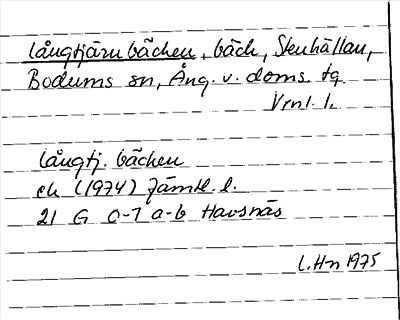 Långtjärnbäcken, bäck, Stenhällan,
Bodums sn, Ång. v. doms. tg
Vrnl. l.
Långtj. bäcken
ek (1974) Jämtl. l.
21 G 0-1 a-b Havsnäs
L.Hn 1975